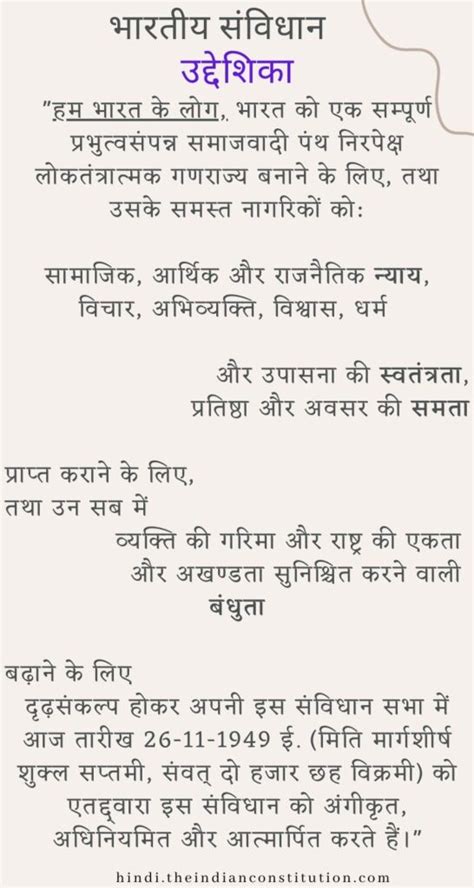 भारतीय संविधान
उद्देशिका
"हम भारत के लोग, भारत को एक सम्पूर्ण
प्रभुत्वसंपन्न समाजवादी पंथ निरपेक्ष
लोकतंत्रात्मक गणराज्य बनाने के लिए, तथा
उसके समस्त नागरिकों को:
सामाजिक, आर्थिक और राजनैतिक न्याय,
विचार, अभिव्यक्ति, विश्वास, धर्म
और उपासना की स्वतंत्रता,
प्रतिष्ठा और अवसर की समता
प्राप्त कराने के लिए,
तथा उन सब में
व्यक्ति की गरिमा और राष्ट्र की एकता
और अखण्डता सुनिश्चित करने वाली
बंधुता
बढ़ाने के लिए
दृढ़संकल्प होकर अपनी इस संविधान सभा में
आज तारीख 26-11-1949 ई. (मिति मार्गशीर्ष
शुक्ल सप्तमी, संवत् दो हजार छह विक्रमी) को
एतद्द्वारा इस संविधान को अंगीकृत,
अधिनियमित और आत्मार्पित करते हैं।”
hindi.theindianconstitution.com